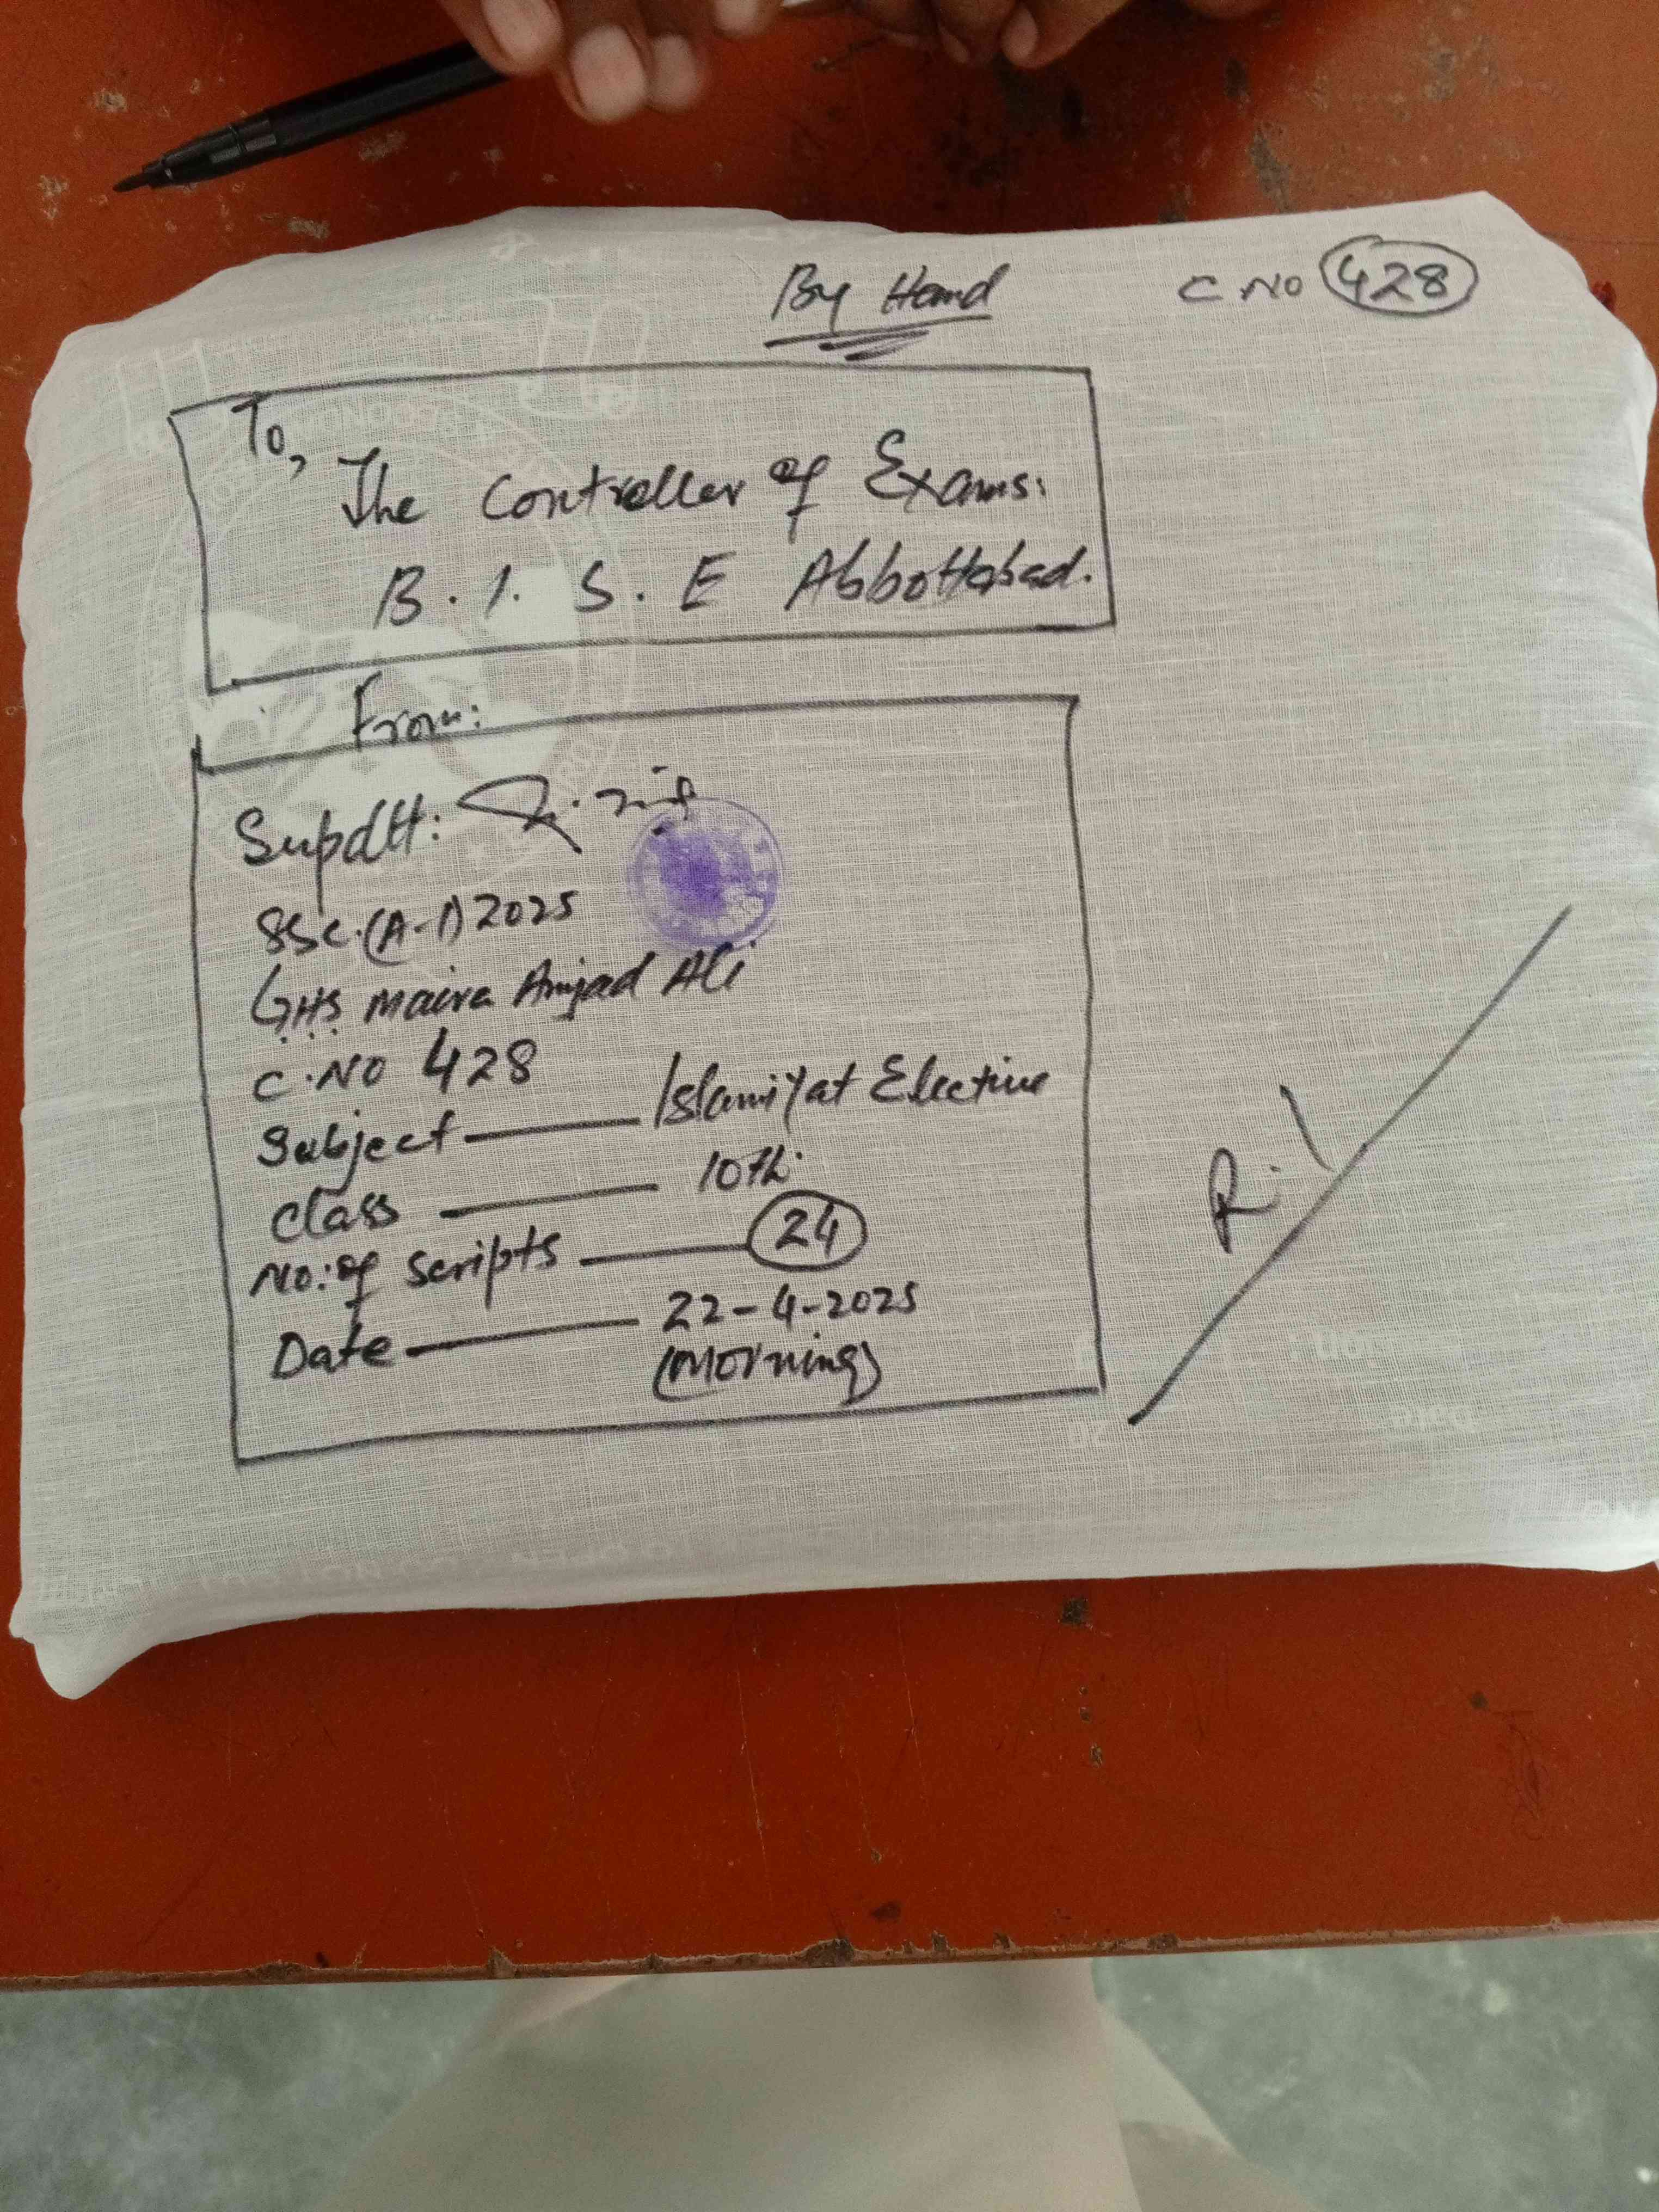 By Hand
C NO 428
To,
The Controller of Exams:
B. I. S. E Abbottabad.
From:
Supdtt:
SSC.(A-I) 2025
GHS Maira Amjad Ali
C.NO 428
Subject — Islamiyat Elective
Class — 10th
No: of Scripts — 24
Date — 22-4-2025
(Morning)